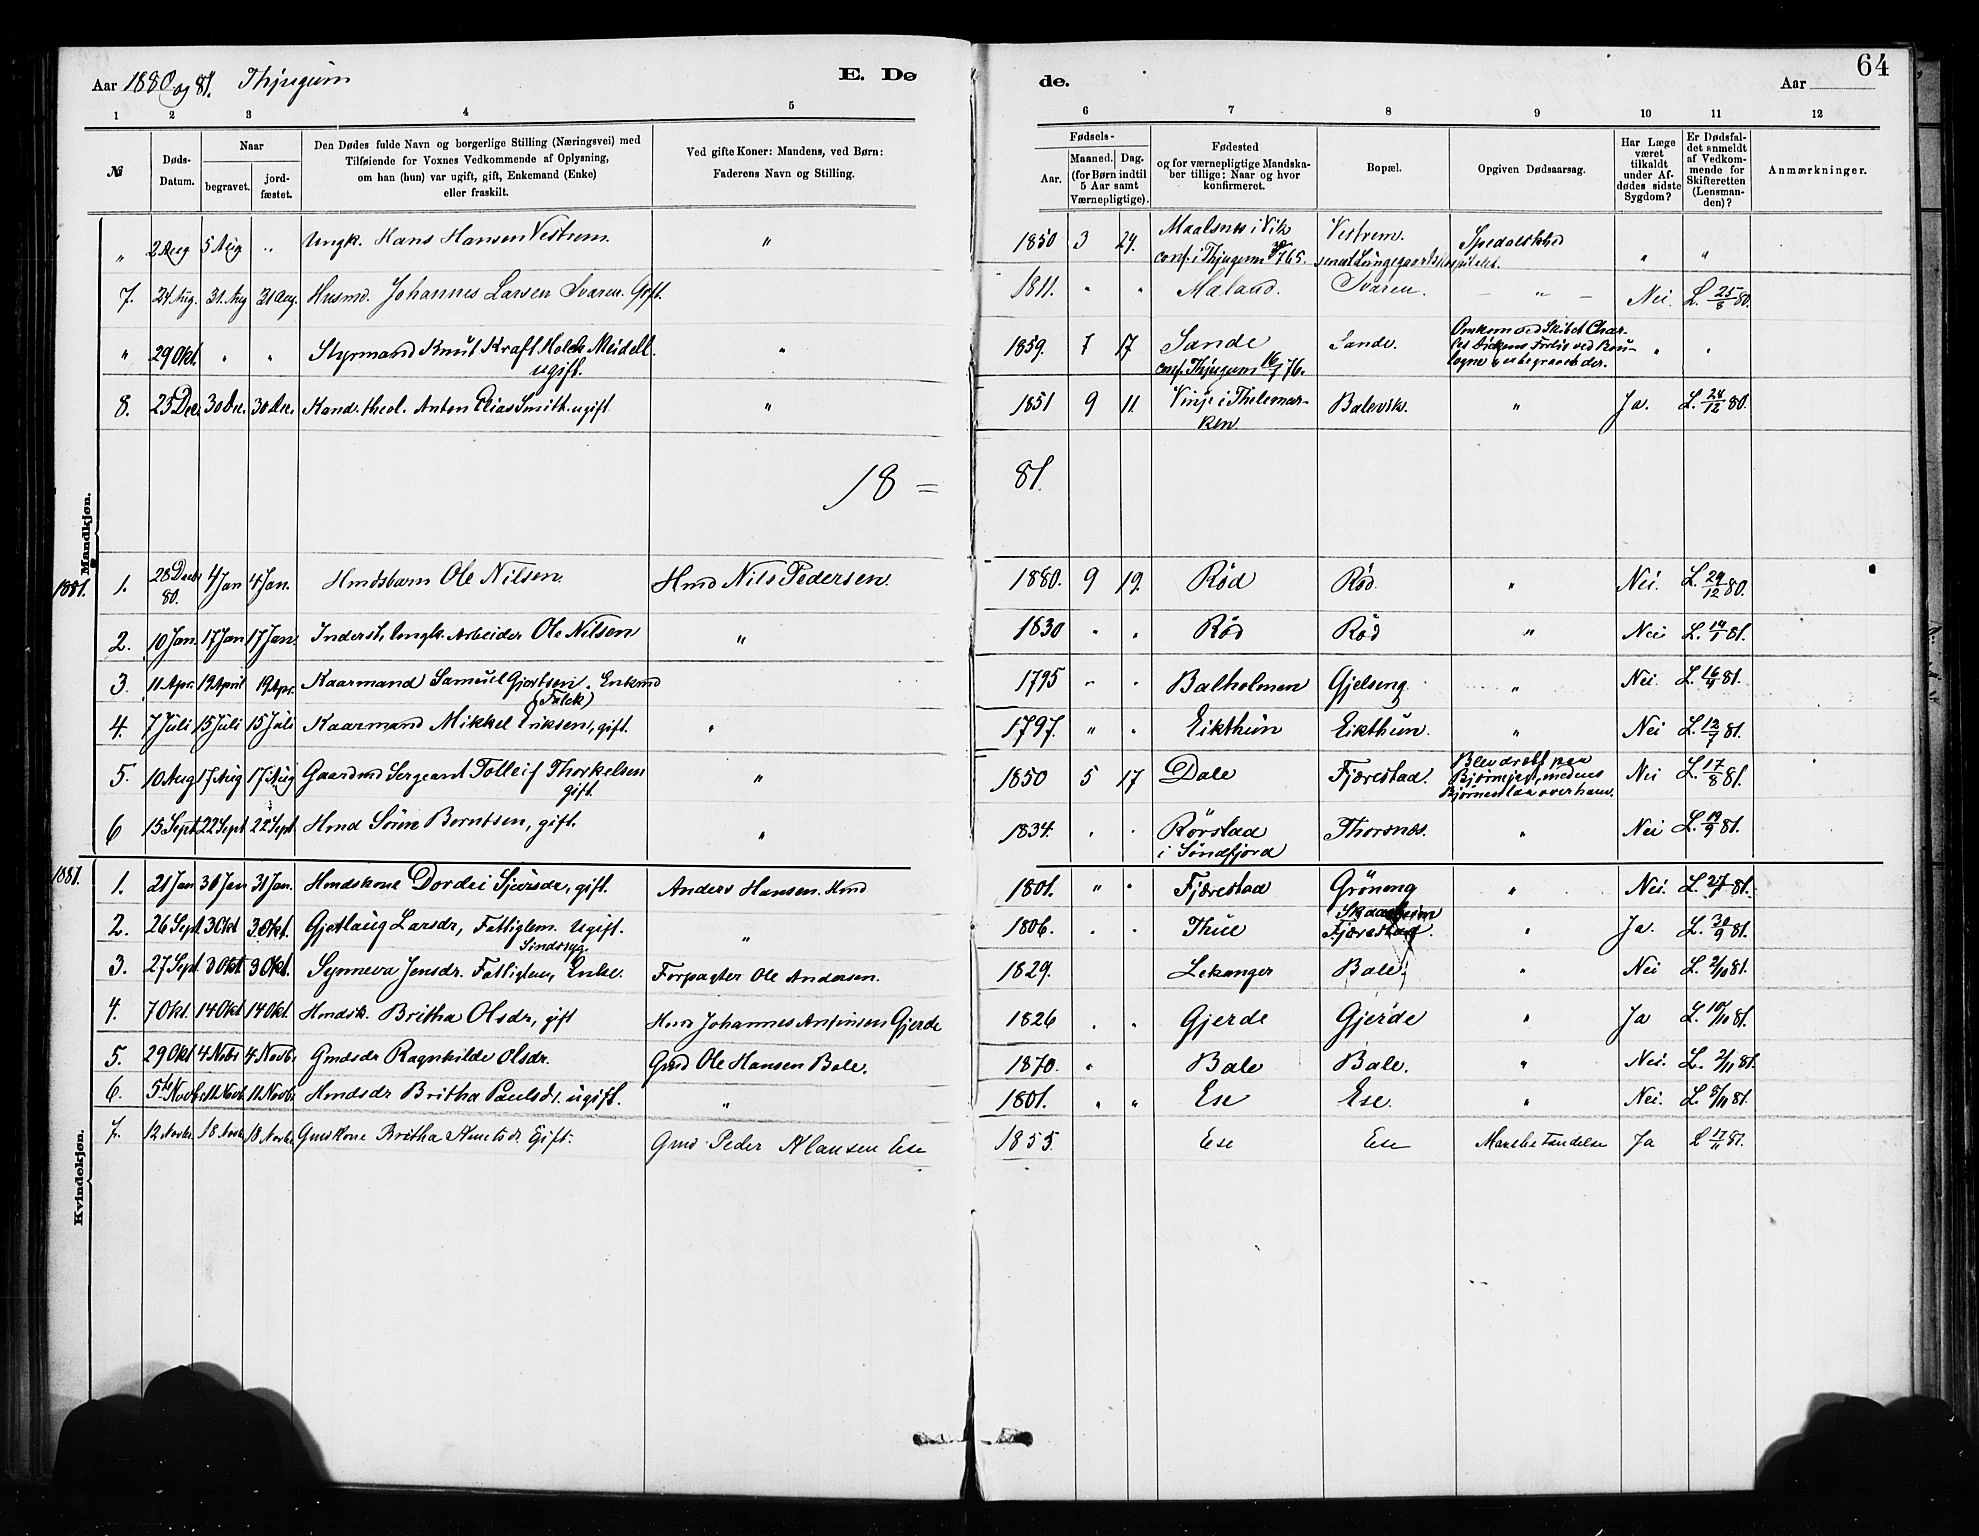 Aar 1880 og 81. Thjugum E. Dø
de. Aar 64
1 2 3 4 5 6 7 8 9 10 11 12
№ Døds-Datum. Naar begravet. jordfæstet. Den Dødes fulde Navn og borgerlige Stilling (Næringsvei) med Tilføiende for Voxnes Vedkommende af Oplysning, om han (hun) var ugift, gift, Enkemand (Enke) eller fraskilt. Ved gifte Koner: Mandens, ved Børn: Faderens Navn og Stilling. Fødsels- Aar. Maaned. Dag. (for Børn indtil 5 Aar samt Værnepligtige). Fødested og for værnepligtige Mandskaber tillige: Naar og hvor konfirmeret. Bopæl. Opgiven Dødsaarsag. Har Læge været tilkaldt under Afdødes sidste Sygdom? Er Dødsfaldet anmeldt af Vedkommende for Skifteretten (Lensmanden)? Anmærkninger.
Mandkjøn.
" 2 Aug 5 Aug " Ungk. Hans Hansen Vestrem. " 1850 3 29. Maalsnes i Vik conf. i Thjugum 65. Vestrem. senest Lungegaardshospitalet. Spedalskhed " "
7. 24 Aug. 31. Aug 31 Aug. Husmd. Johannes Larsen Svaren. Gift. 1811. " " Mæland. Svaren. — " — Nei. L. 25/8 80.
" 29 Okt. " " Styrmand Knut Kraft Holck Meidell. ugift. " 1859. 7 17 Sande conf. Thjugum 16/7 76. Sande. Omkom ved Skibet Charles Dickens Forlis ved Boulogne & er begravet der. " "
8. 23 Dec. 30 Dec. 30 Dec. Kand. theol. Anton Elias Smith. ugift. " 1851 9 11. Vinje i Thelemarken. Balevik. " Ja. L. 24/12 80.
18 = 81.
1881. 1. 28 Decbr 80. 4 Jan 4 Jan. Hmdsbarn Ole Nilsen. Hmd Nils Pedersen. 1880. 9 19. Rød Rød. " Nei. L. 29/12 80.
2. 10 Jan. 17 Jan 17 Jan. Inderst, Ungk. Arbeider Ole Nilsen " 1830 " " Rød Rød " Nei L. 14/1 81.
3. 11 Apr. 19 April 19 Apr. Kaarmand Samuel Gjertsen (Falck). Enkmd 1795 " " Balholmen Gjelseng. " Nei. L. 16/4 81.
4. 7 Juli 15 Juli 15 Juli Kaarmand Mikkel Eriksen, gift. " 1797. " " Eikthun Eikthun. " Nei L. 12/7 81.
5. 10 Aug 17 Aug 17 Aug Gaardmd Sergeant Tolleif Thorkelsen gift. " 1850 5 17 Dale Fjærestad. Blev dræbt paa Bjørnejagt, medens Bjørnen laa over ham. Nei L. 17/8 81.
6 15 Sept. 22 Sept 22 Sept. Hmd Sören Berntsen, gift. " 1834. " " Rörstad i Söndfjord Thorsnæs. " Nei L. 19/9 81.
Kvindekjøn.
1881. 1. 21 Jan 31 Jan 31 Jan. Hmdskone Dordei Sjursdr, gift. Anders Hansen. Hmd 1801. " " Fjærestad Gröneng " Nei. L. 27/1 81.
2. 26 Sept. 3 Okt 3 Okt. Gjertlaug Larsdr, Fattiglem. Ugift. Sindssyg. " 1806. " " Thue Skaasheim Fjærestad. " Ja. L. 30/9 81.
3. 27 Sept 3 Okt. 3 Okt. Synneva Jensdr. Fattiglem, Enke. Forpagter Ole Andersen. 1829. Lekanger Bale. " Nei L. 2/10 81.
4. 7 Okt. 14 Okt 14 Okt. Hmdsk. Britha Olsdr, gift Hmd Johannes Anfinsen Gjerde 1826 " " Gjerde Gjerde " Ja L. 10/10 81.
5. 29 Okt 4 Nobr 4 Novbr. Gmdsdr Ragnhilde Olsdr. Gmd Ole Hansen Bale. 1870. " Bale Bale. " Nei. L. 2/11 81.
6. 5te Novb. 11 Novb. 11 Novb. Hmdsdr Britha Paulsdr. ugift. " 1801. " " Ese Ese. " Nei. L. 8/11 81.
7. 12 Novbr. 18 Novbr 18 Novbr. Gmdskone Britha Gift. Gmd Peder Klausen Ese 1855. Ese Ese Mavebetændelse Ja L 17/11 81.